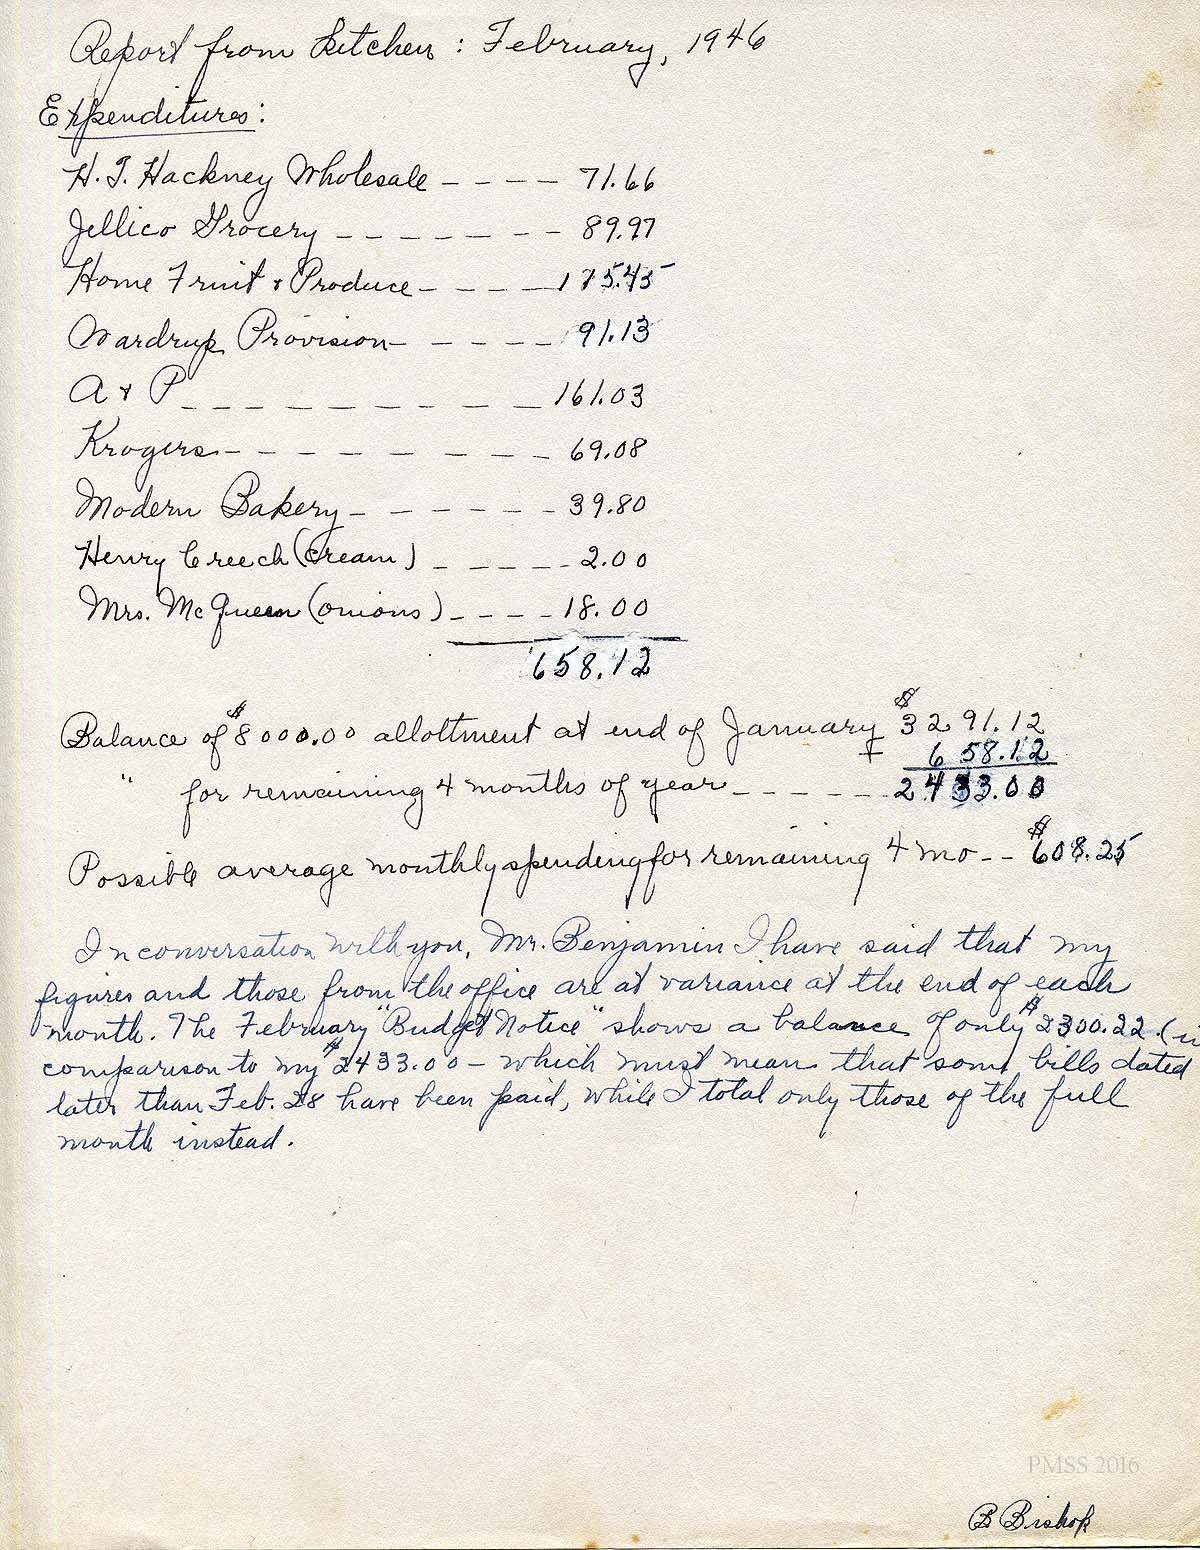 Report from Kitchen: February, 1946
Expenditures:
H. T. Hackney Wholesale - - - - 71.66
Jellico Grocery - - - - - - - 89.97
Home Fruit & Produce - - - - 175.45
Wardrup Provision - - - - - 91.13
A & P - - - - - - - - - - 161.03
Krogers - - - - - - - - - 69.08
Modern Bakery - - - - - - 39.80
Henry Creech (cream) - - - - - 2.00
Mrs. McQueen (onions) - - - - 18.00
658.12
Balance of $8000.00 allottment at end of January $3291.12
+ 658.12
" for remaining 4 months of year - - - - - - 2433.00
Possible average monthly spending for remaining 4 mo - - $608.25
In conversation with you, Mr. Benjamin I have said that my
figures and those from the office are at variance at the end of each
month. The February "Budget Notice" shows a balance of only $2300.22 (in
comparison to my $2433.00 - which must mean that some bills dated
later than Feb. 28 have been paid, while I total only those of the full
month instead.
PMSS 2016
B Bishop